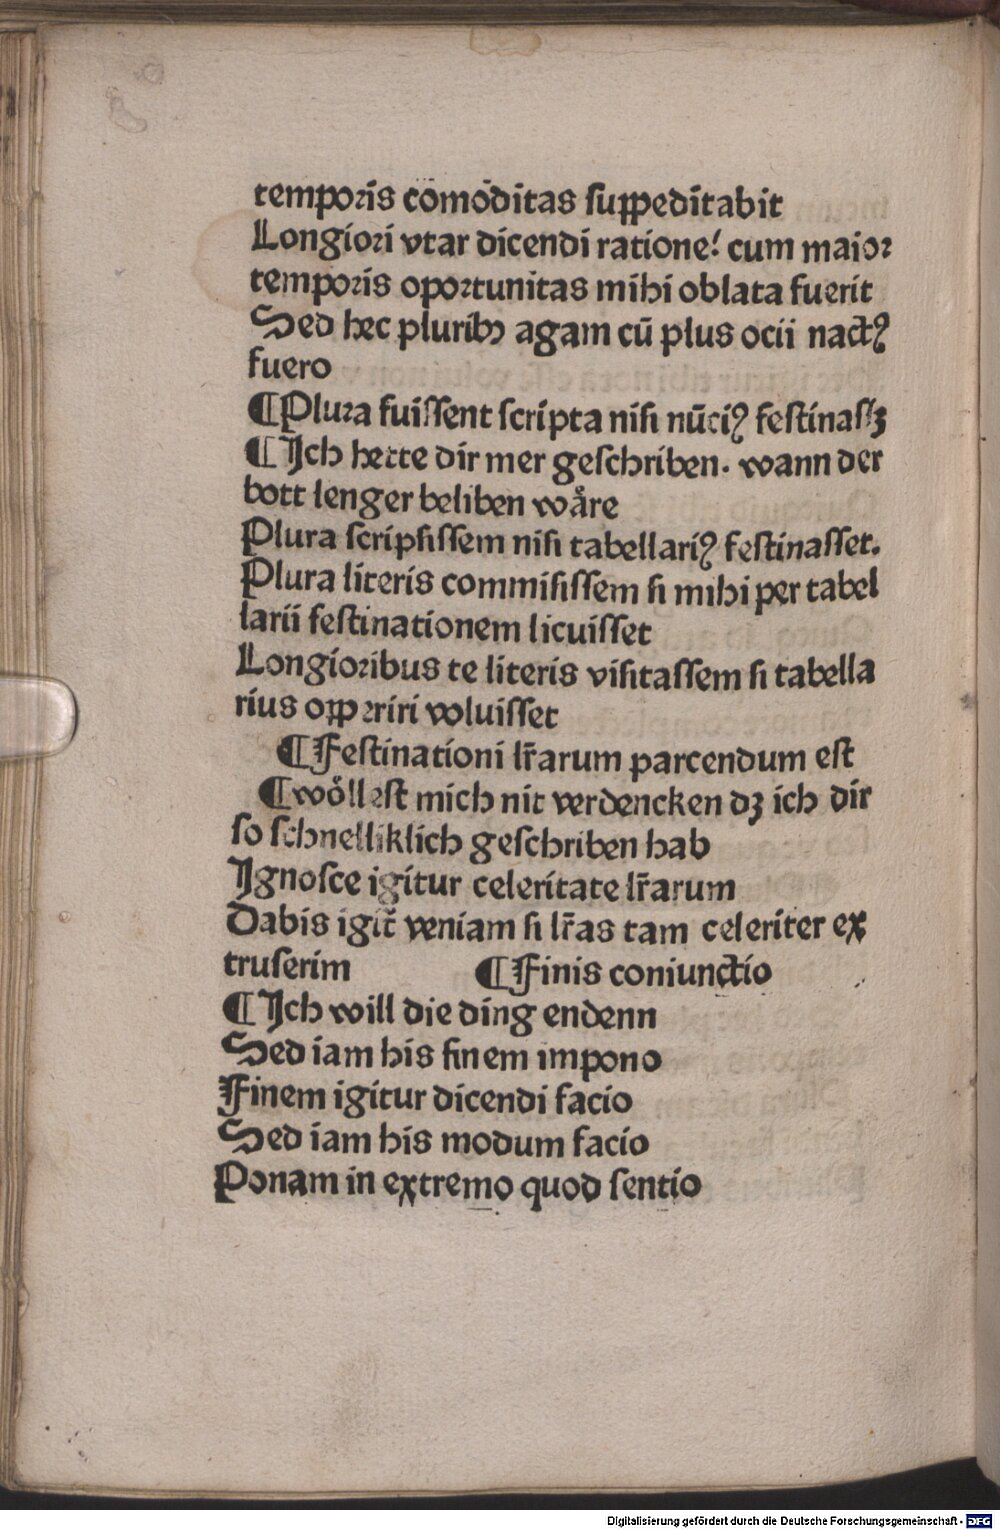 temporis cōmoditas suppeditabit
Longiori vtar dicendi ratione! cum maior
temporis oportunitas mihi oblata fuerit
Sed hec pluribꝫ agam cū plus ocii nactꝰ
fuero
¶Plura fuissent scripta nisi nūciꝰ festinasſꝫ
¶Ich hette dir mer geschriben. wann der
bott lenger beliben wåre
Plura scripsissem nisi tabellariꝰ festinasset.
Plura literis commisissem si mihi per tabel
larii festinationem licuisset
Longioribus te literis visitassem si tabella
rius opperiri voluisset
¶Festinationi lr̄arum parcendum est
¶wöllest mich nit verdencken dꝫ ich dir
so schnelliklich geschriben hab
Ignosce igitur celeritate lr̄arum
Dabis igit̄ veniam si lr̄as tam celeriter ex
truserim ¶Finis coniunctio
¶Ich will die ding endenn
Sed iam his finem impono
Finem igitur dicendi facio
Sed iam his modum facio
Ponam in extremo quod sentio
Digitalisierung gefördert durch die Deutsche Forschungsgemeinschaft - DFG